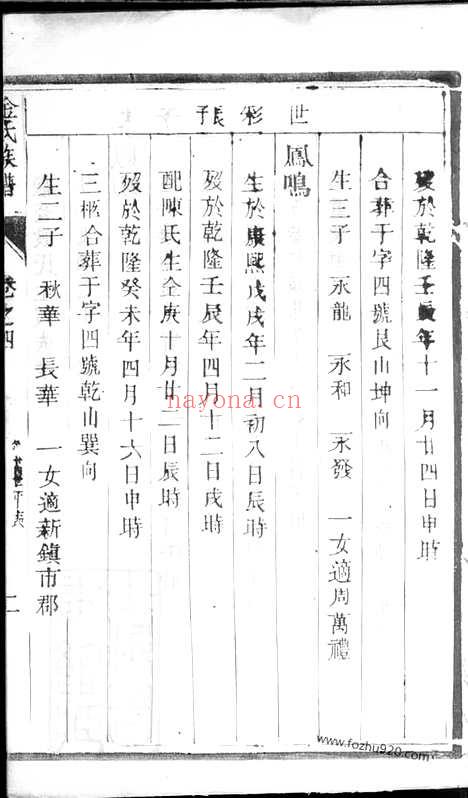 世彩張子
歿於乾隆壬辰年十一月廿四日申時
合葬于字四號艮山坤向
生三子 永龍 永和 永發 一女適周萬禮
鳳鳴
生於康熙戊戌年二月初八日辰時
歿於乾隆壬辰年四月十二日戌時
配陳氏生仝庚十月廿二日辰時
歿於乾隆癸未年四月十六日申時
三柩合葬于字四號乾山巽向
生二子 秋華 長華 一女適新鎮市郡
金氏族譜 卷之四 二
nayona.cn
www.fozhu920.com